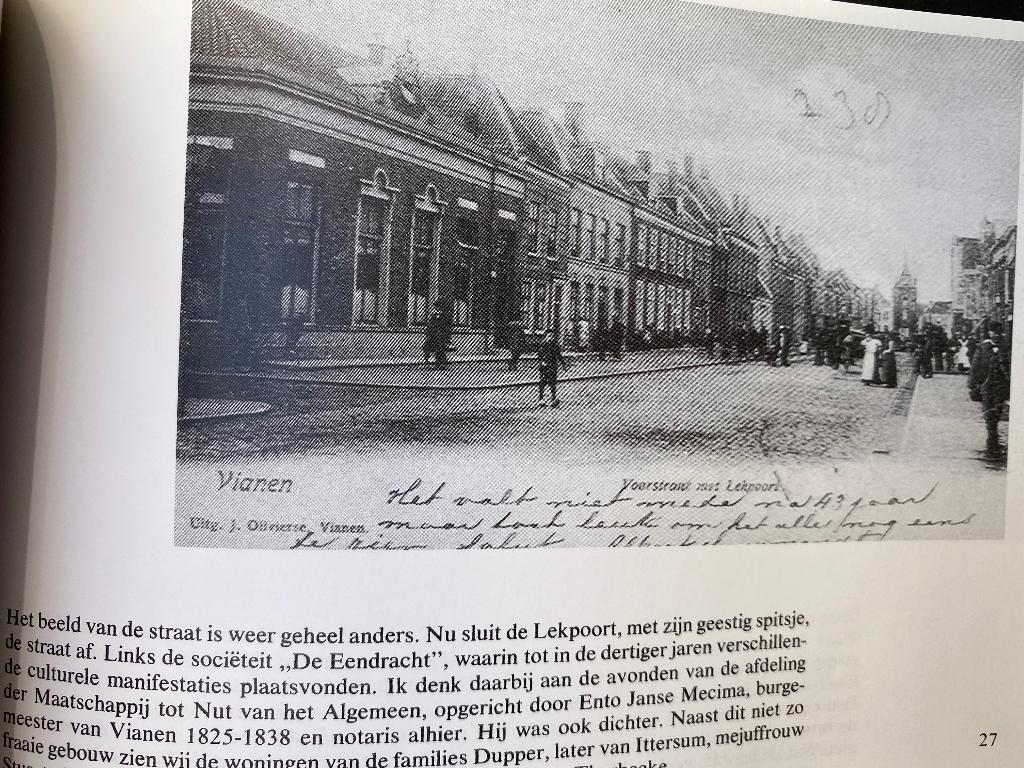 230
Vianen
Voorstraat met Lekpoort.
Uitg. J. Olivierse, Vianen.
Het valt niet mede na 43 jaar
maar toch leuk om het alles nog eens
te zien Saluut
Het beeld van de straat is weer geheel anders. Nu sluit de Lekpoort, met zijn geestig spitsje,
de straat af. Links de sociëteit ,,De Eendracht”, waarin tot in de dertiger jaren verschillen-
de culturele manifestaties plaatsvonden. Ik denk daarbij aan de avonden van de afdeling
der Maatschappij tot Nut van het Algemeen, opgericht door Ento Janse Mecima, burge-
meester van Vianen 1825-1838 en notaris alhier. Hij was ook dichter. Naast dit niet zo
fraaie gebouw zien wij de woningen van de families Dupper, later van Ittersum, mejuffrouw
27